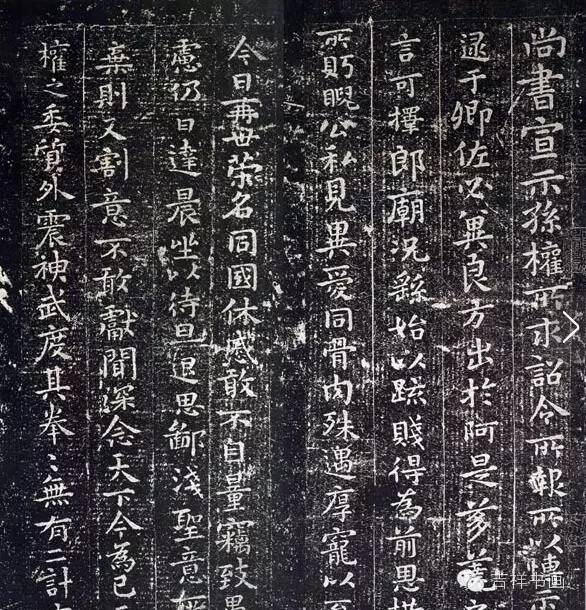 尚書宣示孫權所求詔令所報所以博示
逮于卿佐必異良方出於阿是芻蕘
言可擇郎廟況繇始以疏賤得為前恩橫
所䀹睨公私見異愛同骨肉殊遇厚寵以至
今日再世榮名同國休慼敢不自量竊致愚
慮仍日達晨坐以待旦退思鄙淺聖意所
棄則又割意不敢獻聞深念天下今為已平
權之委質外震神武度其拳〻無有二計
吉祥书画